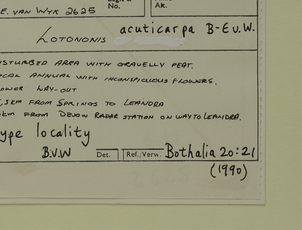 E. VAN WYK 2625 No. Ak.
LOTONONIS acuticarpa B-E v. W.
DISTURBED AREA WITH GRAVELLY PEAT.
LOCAL ANNUAL WITH INCONSPICUOUS FLOWERS.
LOWER LAY-OUT
,5KM FROM SPRINGS TO LEANDRA
KM FROM DEVON RADAR STATION ON WAY TO LEANDRA.
ype locality
B.V.W Det. Ref./Verw. Bothalia 20:21
(1990)